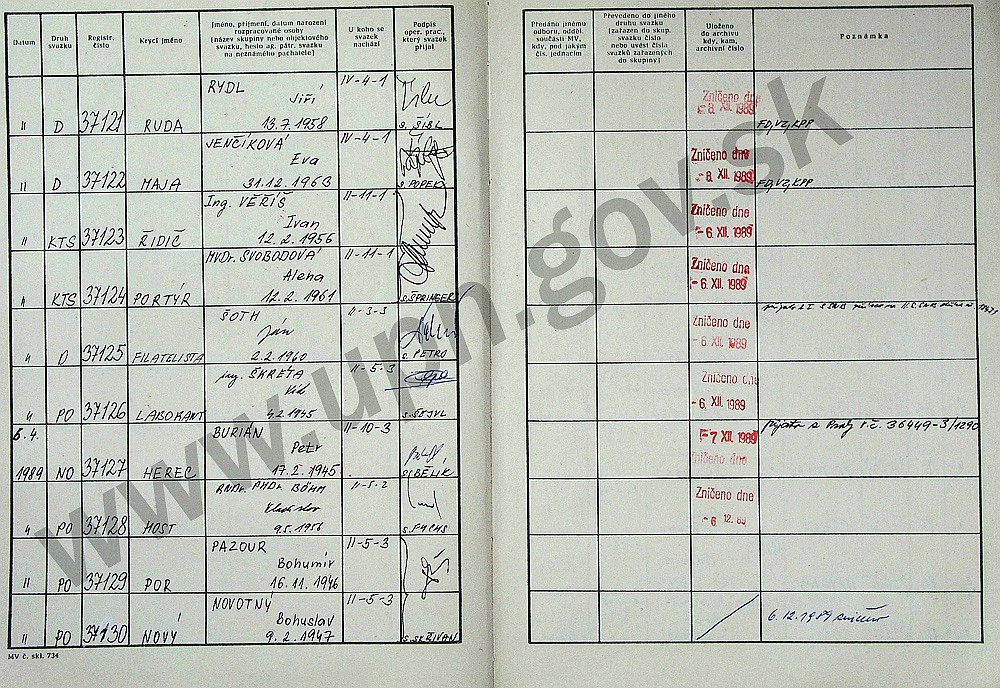 Datum
Druh
svazku
Registr.
číslo
Krycí jméno
Jméno, příjmení, datum narození
rozpracované osoby
[název skupiny nebo objektového
svazku, heslo ag. pátr. svazku
na neznámého pachatele]
U koho se
svazek
nachází
Podpis
oper. prac.,
který svazek
přijal
Předáno jinému
odboru, odděl.
součásti MV,
kdy, pod jakým
čís. jednacím
Převedeno do jiného
druhu svazku
[zařazen do skup.
svazku číslo
nebo uvést čísla
svazků zařazených
do skupiny]
Uloženo
do archivu
kdy, kam,
archivní číslo
Poznámka
RYDL IV-4-1
Jiří
Zničeno dne
- 8. XII. 1989
" D 37121 RUDA 13.7.1958 s. ŠÍBL
FD, VZ, KPP
JENČÍKOVÁ IV-4-1
Eva
Zničeno dne
- 8. XII. 1989
" D 37122 MAJA 31.12.1963 s. POPEK
FD, VZ, KPP
Ing. VĚŘIŠ II-11-1
Ivan
Zničeno dne
- 6. XII. 1989
" KTS 37123 ŘIDIČ 12.2.1956
MVDr. SVOBODOVÁ II-11-1
Alena
Zničeno dne
- 6. XII. 1989
" KTS 37124 PORTÝR 12.2.1961 s. ŠPRINGER
ŠOTH II-3-3
Ján
Zničeno dne
- 6. XII. 1989
" D 37125 FILATELISTA 2.2.1960 s. PETRO
ing. ŠKRETA II-5-3
Zničeno dne
- 6. XII. 1989
" PO 37126 LABORANT 4.2.1945 s. ŠEJVL
6.4. BURIÁN II-10-3
Petr
- 7 XII. 1989
Zničeno dne
1989 NO 37127 HEREC 17.2.1945 s. BĚLÍK
36449-3/1290
RNDr. PHDr. BÖHM II-5-2
Vladislav
Zničeno dne
- 6. 12. 89
" PO 37128 HOST 9.5.1956 s. FUCHS
PAZOUR II-5-3
Bohumír
" PO 37129 POR 16.11.1946
NOVOTNÝ II-5-3
Bohuslav
6.12.1989 zničen
" PO 37130 NOVÝ 9.2.1947 s. SKŘIVAN
MV č. skl. 734
www.upn.gov.sk